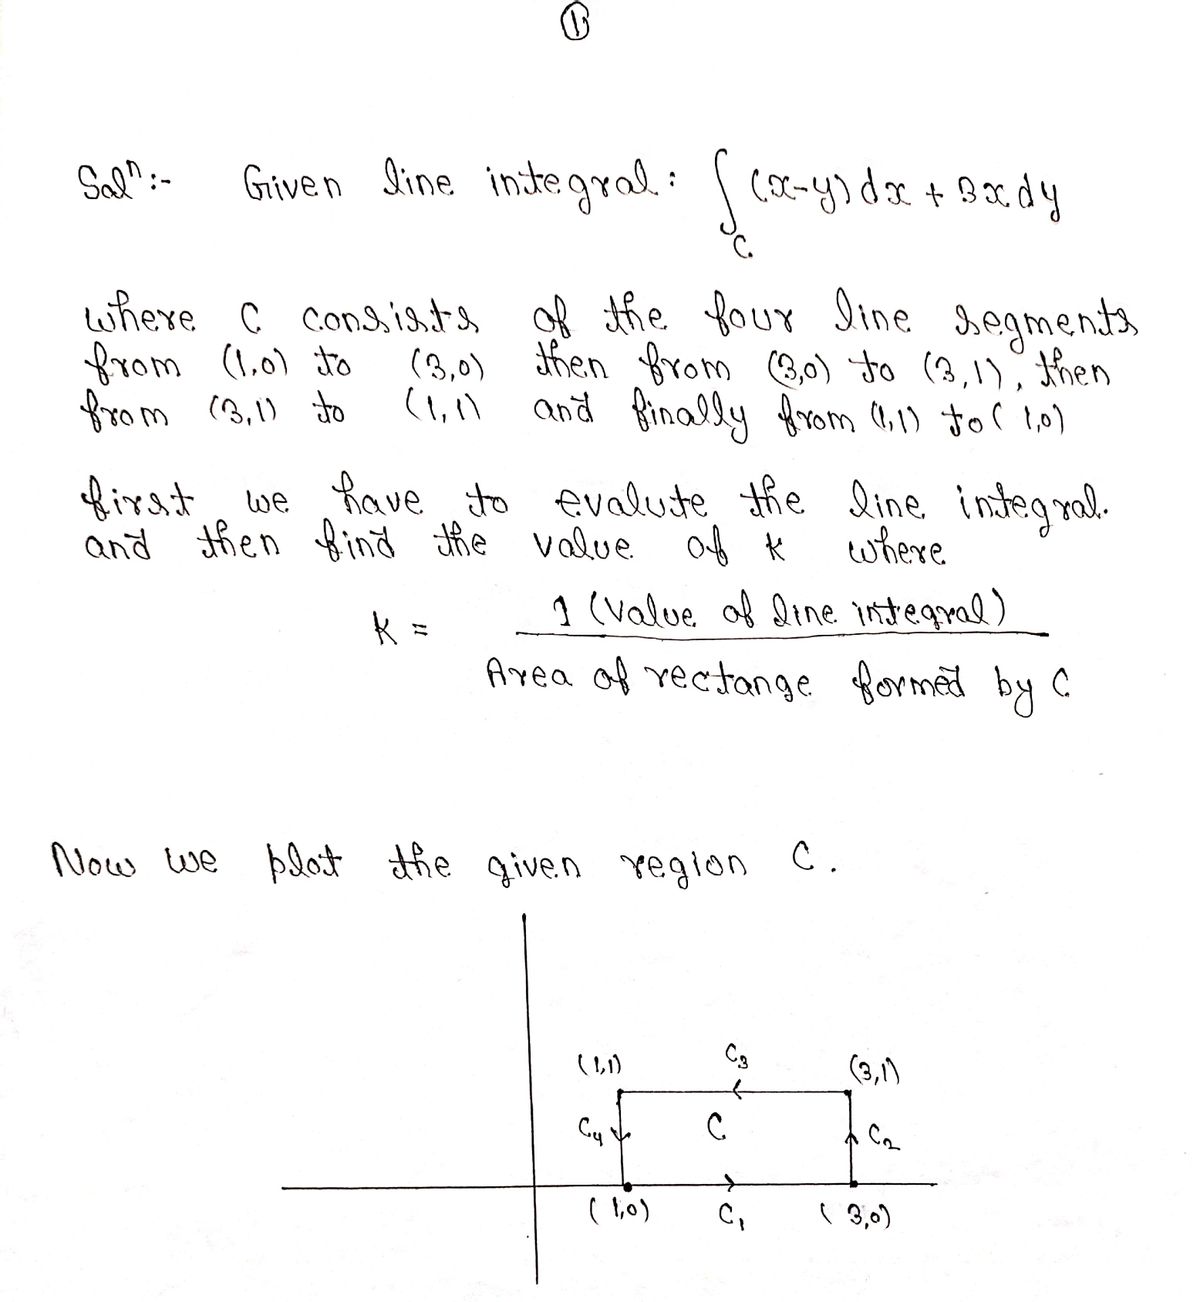 ①
Solⁿ:- Given line integral: ∫_C (x-y)dx + 3x dy
where C consists of the four line segments
from (1,0) to (3,0) then from (3,0) to (3,1), then
from (3,1) to (1,1) and finally from (1,1) to (1,0)
first we have to evalute the line integral.
and then find the value of k where
k = 1 (Value of line integral) / Area of rectange formed by C
Now we plot the given region C.
(1,1) C₃ (3,1)
C₄ C C₂
(1,0) C₁ (3,0)